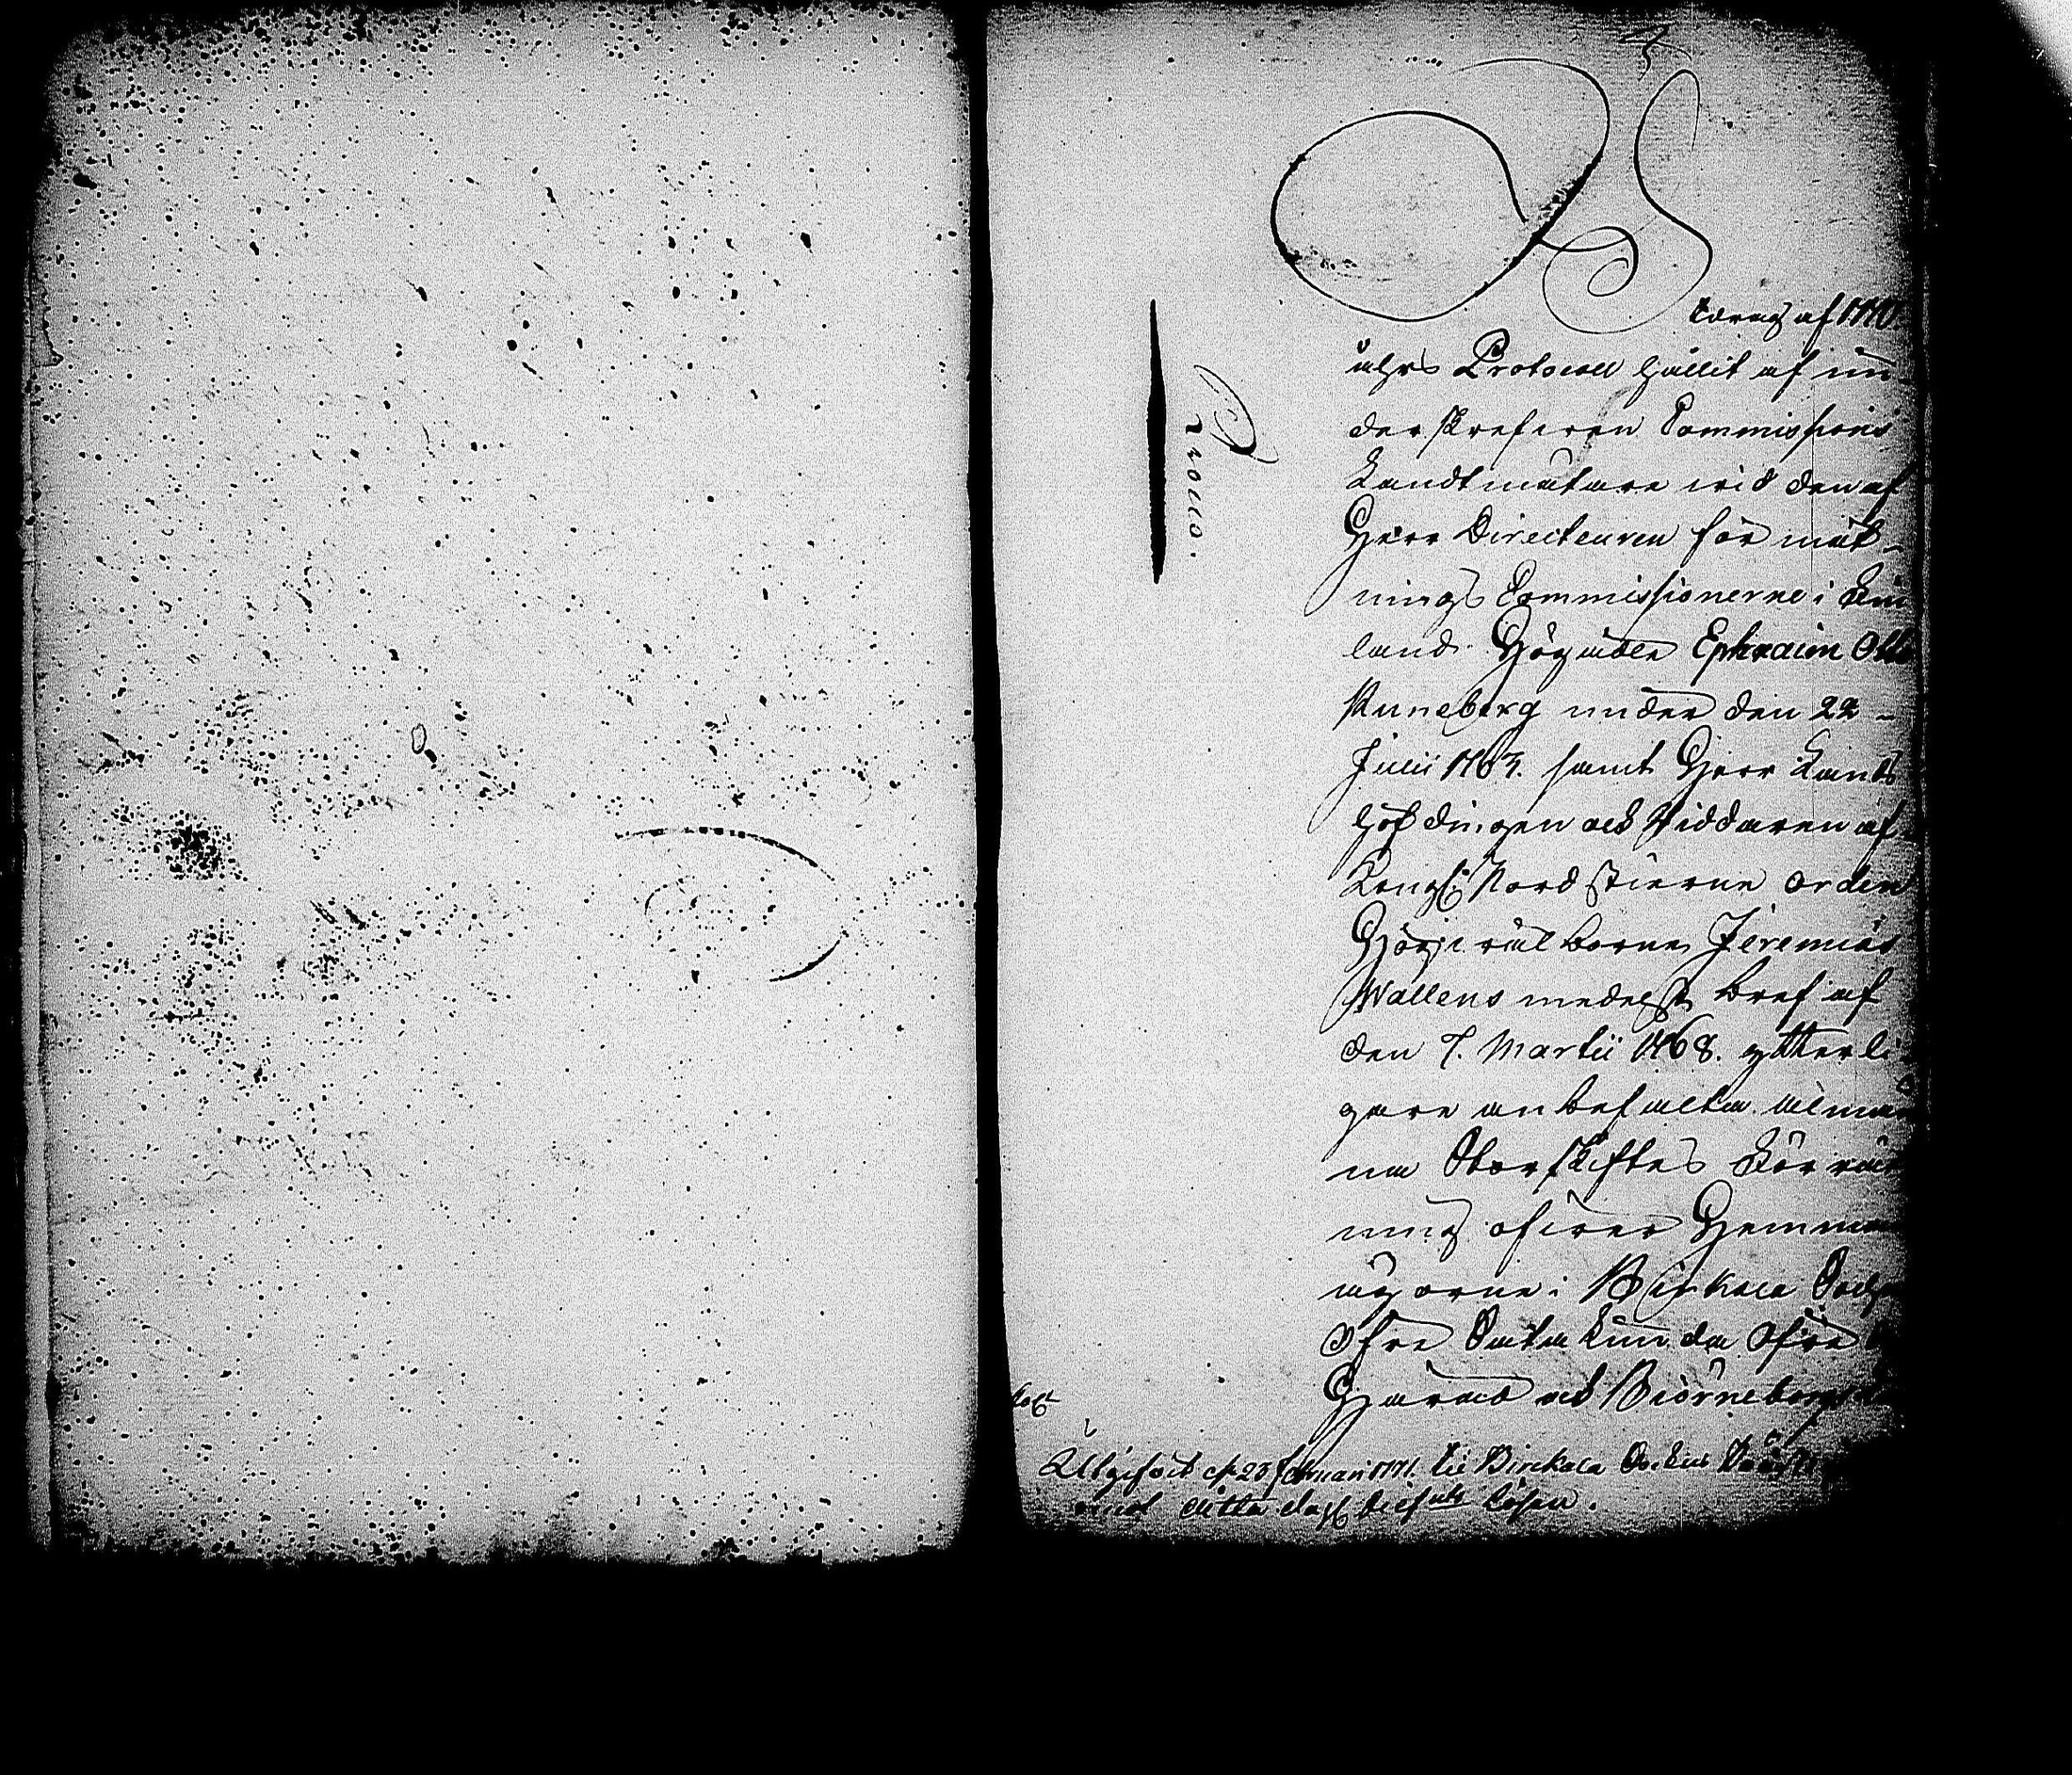 Utdrag af 1770
åhrs Protocoll hållit af un-
derskrefven Commissions
Landtmätare vid den af
Herr Directeuren för mät-
nings Commissionerne i Fin
land Högädle Ephraim Otto
Runeberg under den 22
Julii 1763. samt Herr Lands
höfdingen och Riddaren af
Kongl: Nordstierne Orden
Högvälborne Jeremias
Wallens medelst bref af
den 7. Martii 1768. ytterli
gare anbefalta almän
na Storskiftes Förrät
ning öfwer Hemmans
ägorne i Birkala Sochn
Öfre Satakunda Öfre
Härad och Biörneborgs
Utgifvit d. 23 februari 1771. til Birckala Sockns
emot detta dagl.